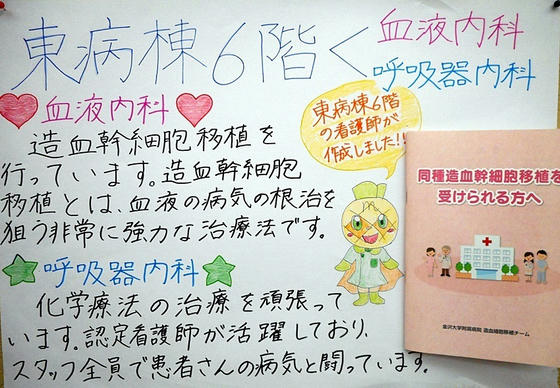 東病棟6階<
血液内科
呼吸器内科
血液内科
造血幹細胞移植を
行っています。造血幹細胞
移植とは、血液の病気の根治を
狙う非常に強力な治療法です。
東病棟6階
の看護師が
作成しました!!
同種造血幹細胞移植を
受けられる方へ
金沢大学附属病院 造血細胞移植チーム
呼吸器内科
化学療法の治療を頑張って
います。認定看護師が活躍しており、
スタッフ全員で患者さんの病気と闘っています。